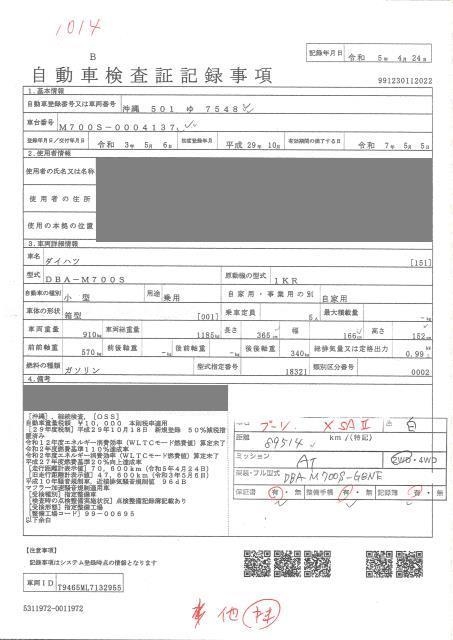 1014
B
記録年月日 令和 5年 4月24日
自動車検査証記録事項
991230112022
1.基本情報
自動車登録番号又は車両番号 沖縄 501 ゆ 7548
車台番号 M700S-0004137
登録年月日/交付年月日 令和 3年 5月 6日 初度登録年月 平成29年10月 有効期間の満了する日 令和 7年 5月 5日
2.使用者情報
使用者の氏名又は名称
使用者の住所
使用の本拠の位置
3.車両詳細情報
車名 ダイハツ [151]
型式 DBA-M700S 原動機の型式 1KR
自動車の種別 小型 用途 乗用 自家用・事業用の別 自家用
車体の形状 箱型 [001] 乗車定員 5人 最大積載量 -kg
車両重量 910kg 車両総重量 1185kg 長さ 365cm 幅 166cm 高さ 152cm
前前軸重 570kg 前後軸重 -kg 後前軸重 -kg 後後軸重 340kg 総排気量又は定格出力 0.99
燃料の種類 ガソリン 型式指定番号 18321 類別区分番号 0002
4.備考
[沖縄], 継続検査, [OSS]
自動車重量税額 ¥10,000 本則税率適用
[29年度税制]平成29年10月18日 新規登録 50%減税措置済み
令和12年度エネルギー消費効率(WLTCモード燃費値)算定未了
令和2年度燃費基準110%達成車
令和2年度エネルギー消費効率(WLTCモード燃費値)算定未了
平成27年度燃費基準20%向上達成車
[走行距離計表示値]70,600km(令和5年4月24日)
[旧走行距離計表示値]47,600km(令和3年5月6日)
平成10年騒音規制車, 近接排気騒音規制値 96dB
マフラー加速騒音規制適用車
[受検種別]指定整備車
[検査時の点検整備実施状況]点検整備記録簿記載あり
[受検形態]指定整備工場
[整備工場コード]99-00695
以下余白
ブーン X SAⅡ 白
距離 89514 km/(特記)
ミッション AT 2WD・4WD
認装・フル型式 DBA-M700S-GBNE
保証書 有・無 整備手帳 有・無 記録簿 有・無
【注意事項】
記録事項はシステム登録時点の情報となります
車両ID T9465ML7132955
5311972-0011972
他